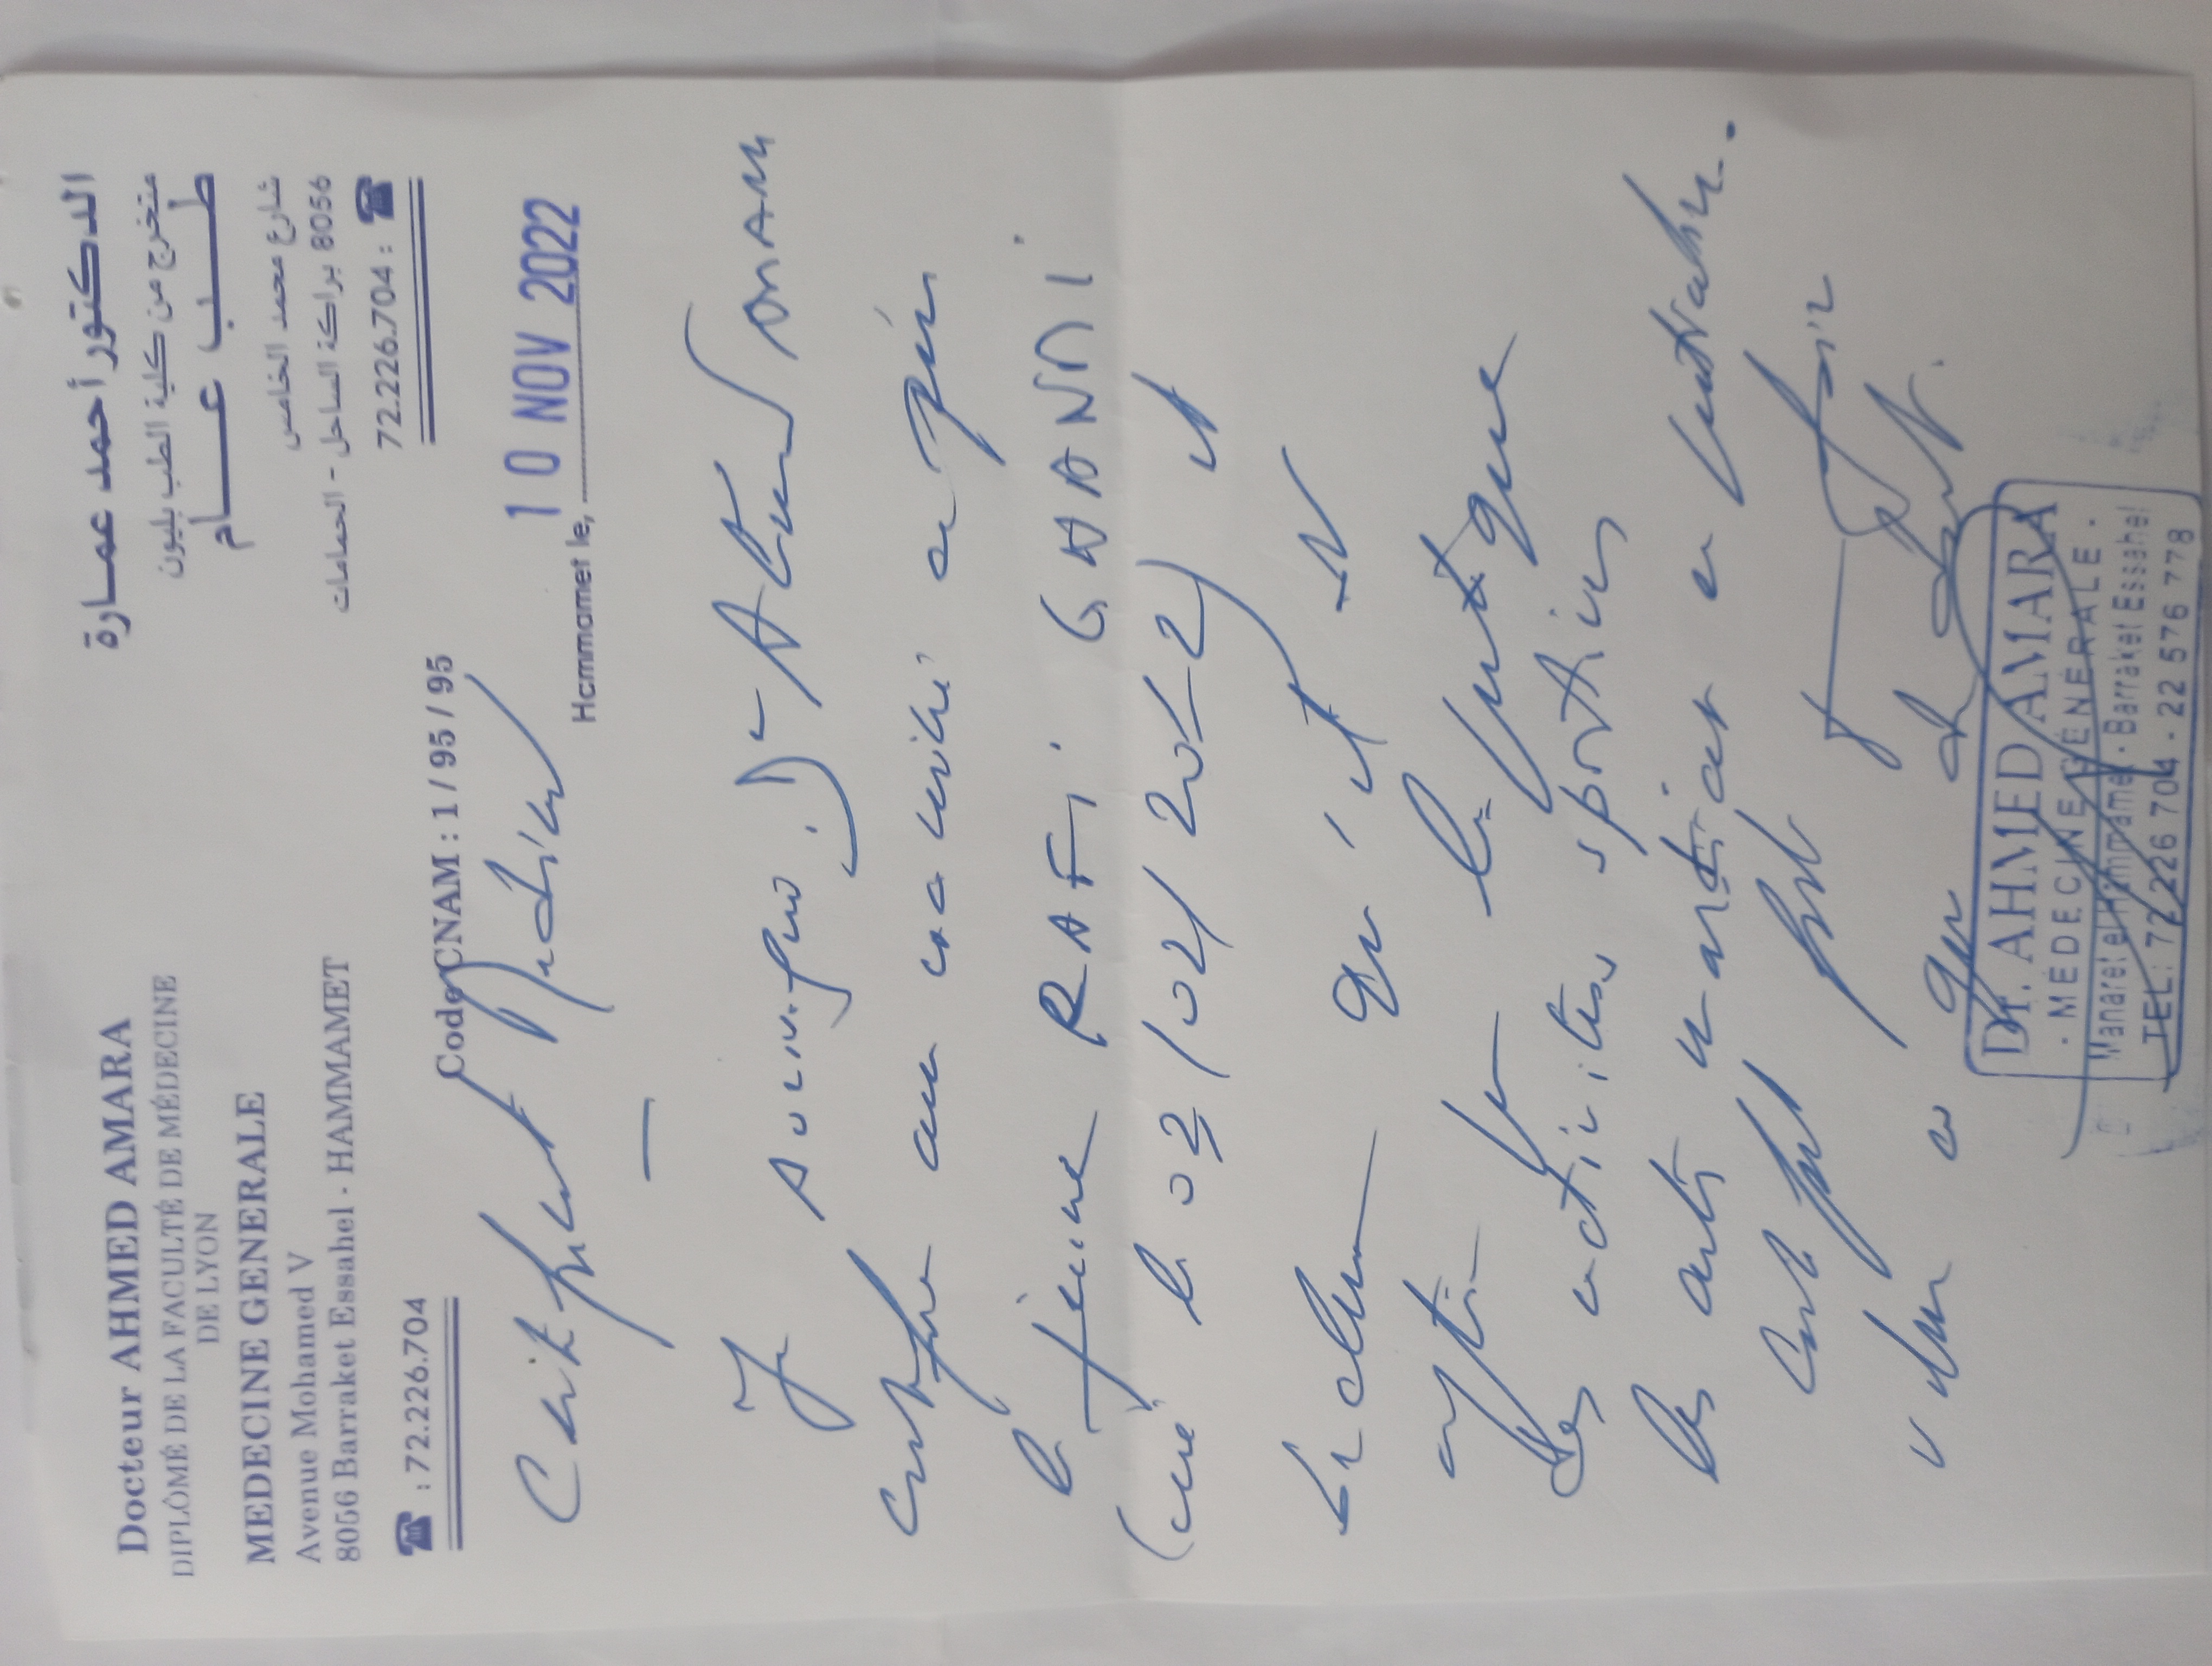 Docteur AHMED AMARA
DIPLÔMÉ DE LA FACULTÉ DE MÉDECINE
DE LYON
MEDECINE GENERALE
Avenue Mohamed V
8056 Barraket Essahel - HAMMAMET
☎ : 72.226.704
الدكتور أحمد عمارة
متخرج من كلية الطب بليون
طب عام
شارع محمد الخامس
8056 براكة الساحل - الحمامات
72.226.704 : ☎
Code CNAM : 1 / 95 / 95
Hammamet le, 10 NOV 2022
Certificat Médical
Je soussigné Dr Ahmed AMARA
certifie avoir examiné ce jour
le jeune RAFI GHANMI
(né le 02/02/2022) et
déclare qu'il est
apte pour la pratique
des activités sportives
les arts martiaux en particulier.
Dr. AHMED AMARA
- MÉDECINE GÉNÉRALE -
Manaret el Hammamet - Barraket Essahel
TEL: 72 226 704 - 22 576 778